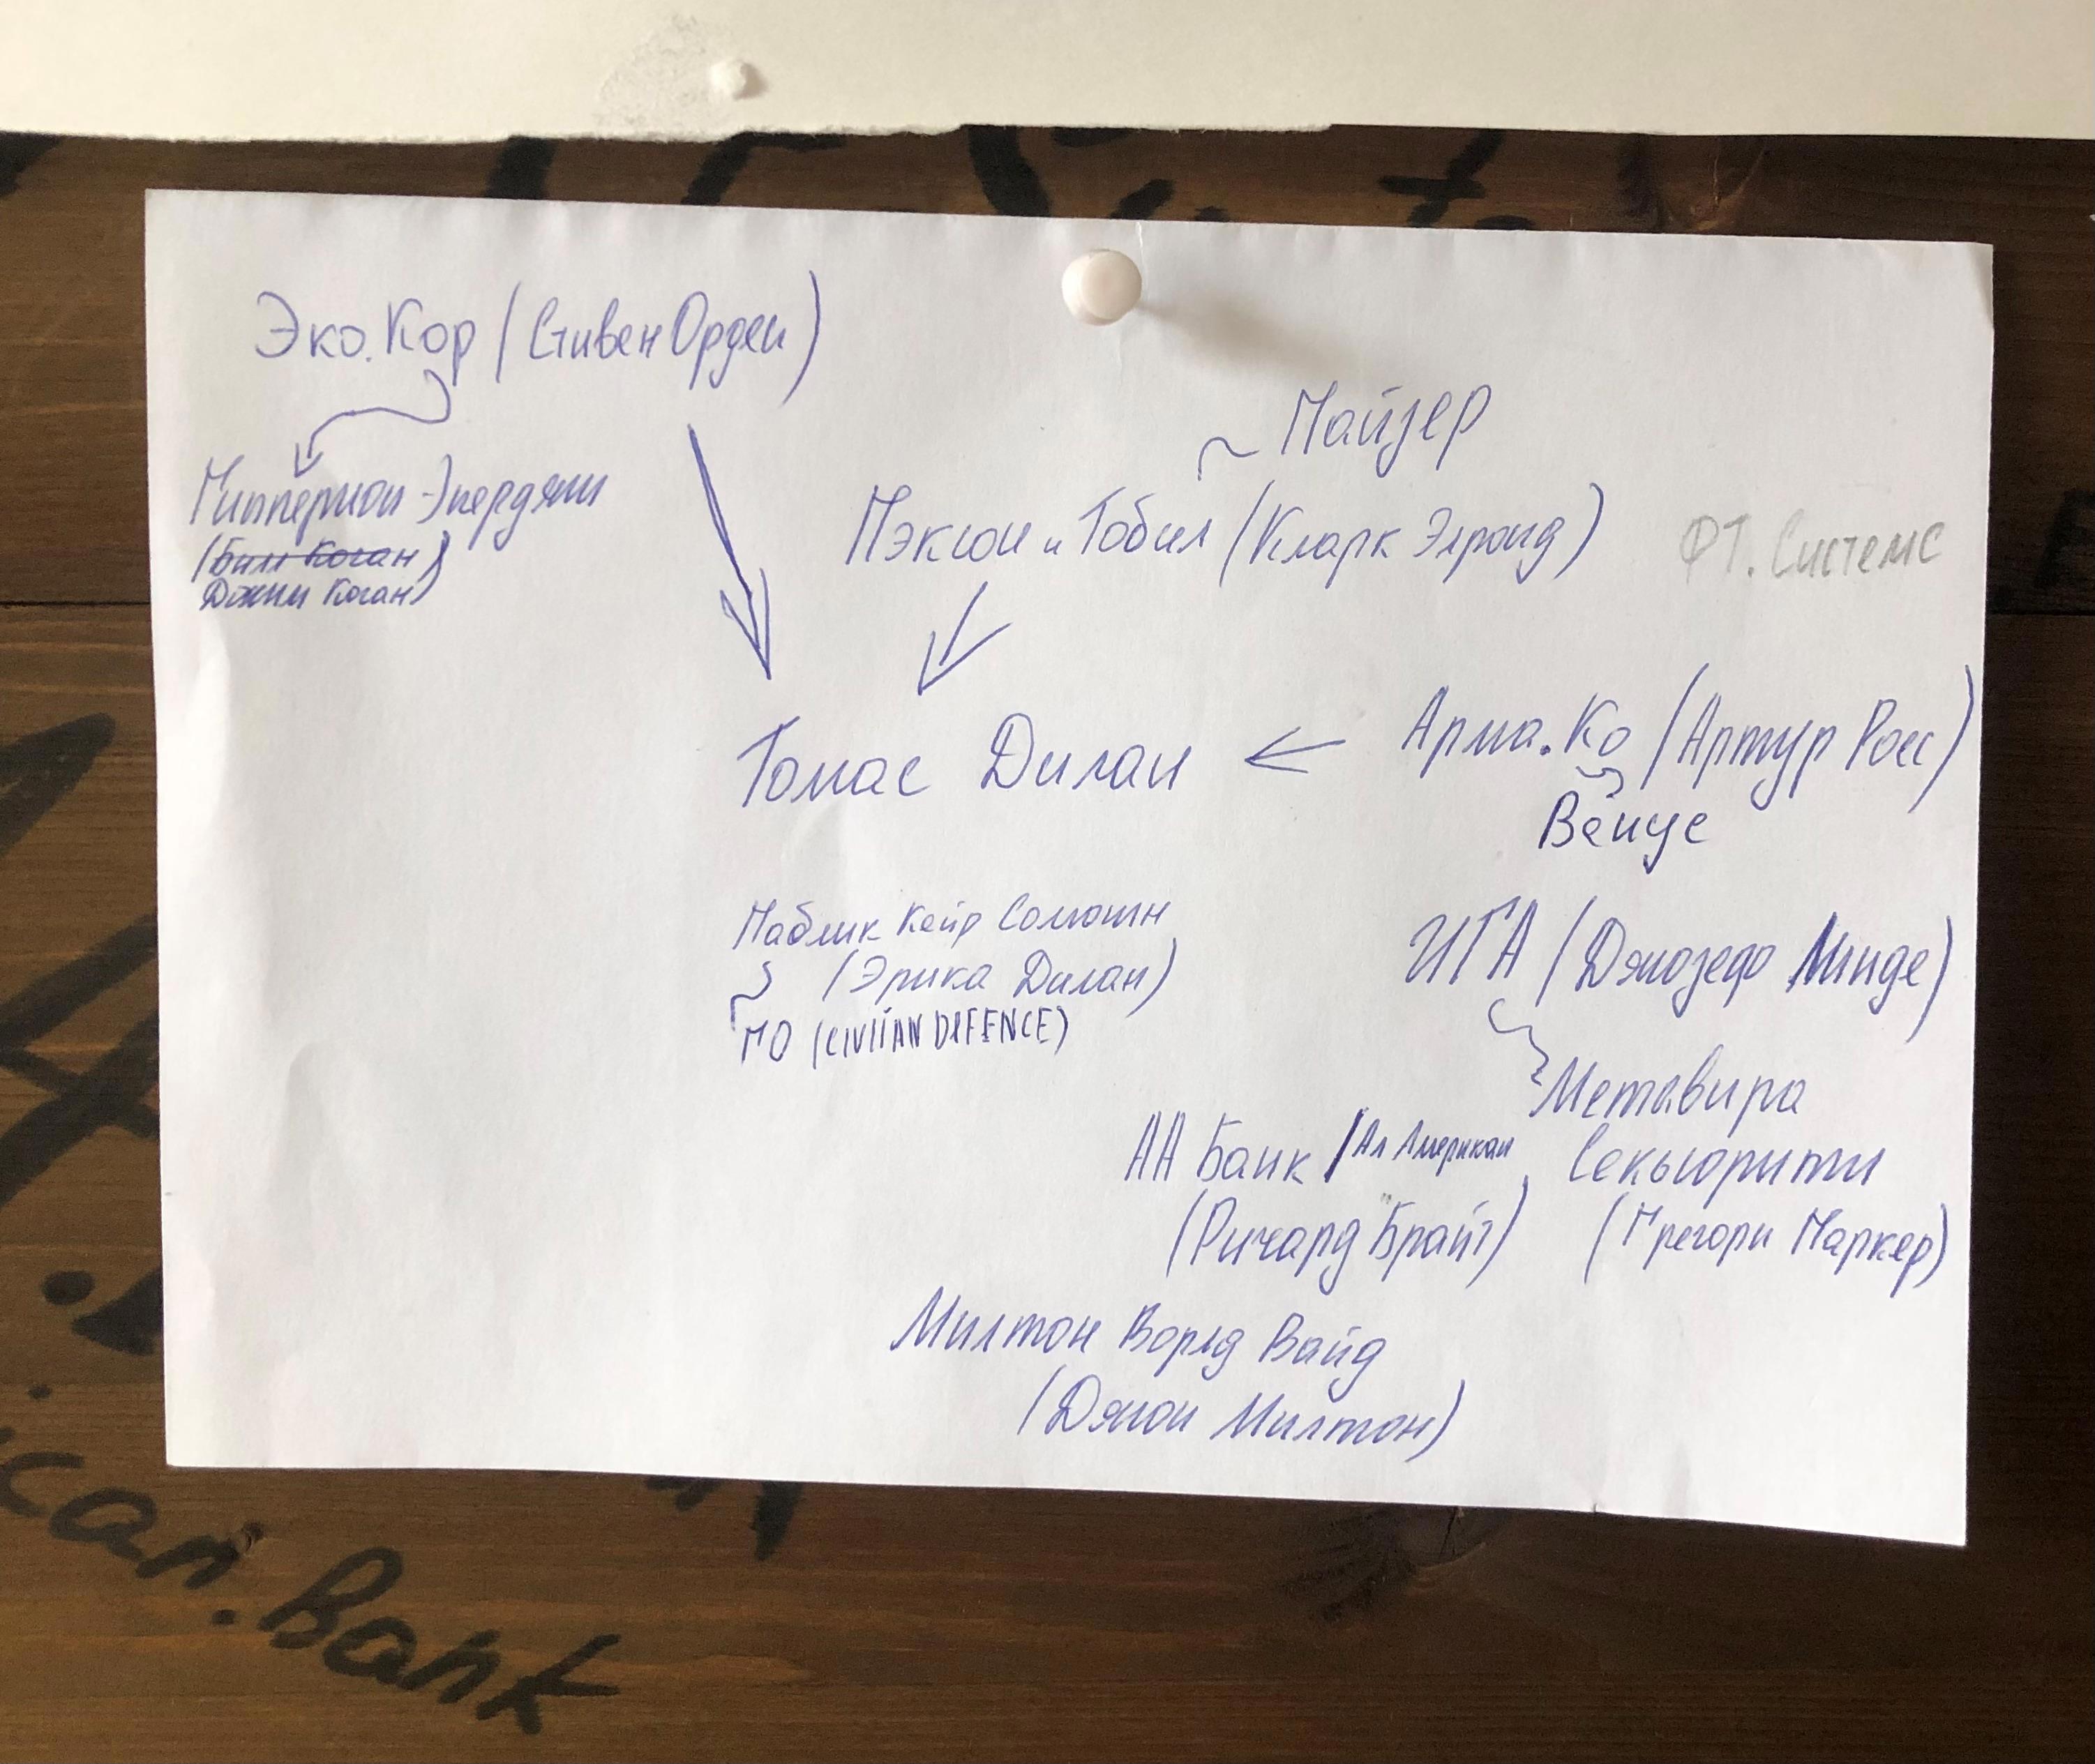 Эко.Кор (Стивен Орден)
Майзер
Гипперион Энерджи
(Бил Коган)
Джим Коган)
Пэксон и Тобил (Кларк Элроид)
ФТ. Системс
Томас Дилан
Арма.Ко (Артур Росс)
Венус
Паблик Кейр Солюшн
(Эрика Дилан)
ГО (CIVILIAN DEFENCE)
ИГА (Джозеф Минде)
Метавира
Секьюрити
(Грегори Паркер)
АА Банк / Ал Американ
(Ричард Брайт)
Милтон Ворлд Вайд
(Джон Милтон)
can.Bank